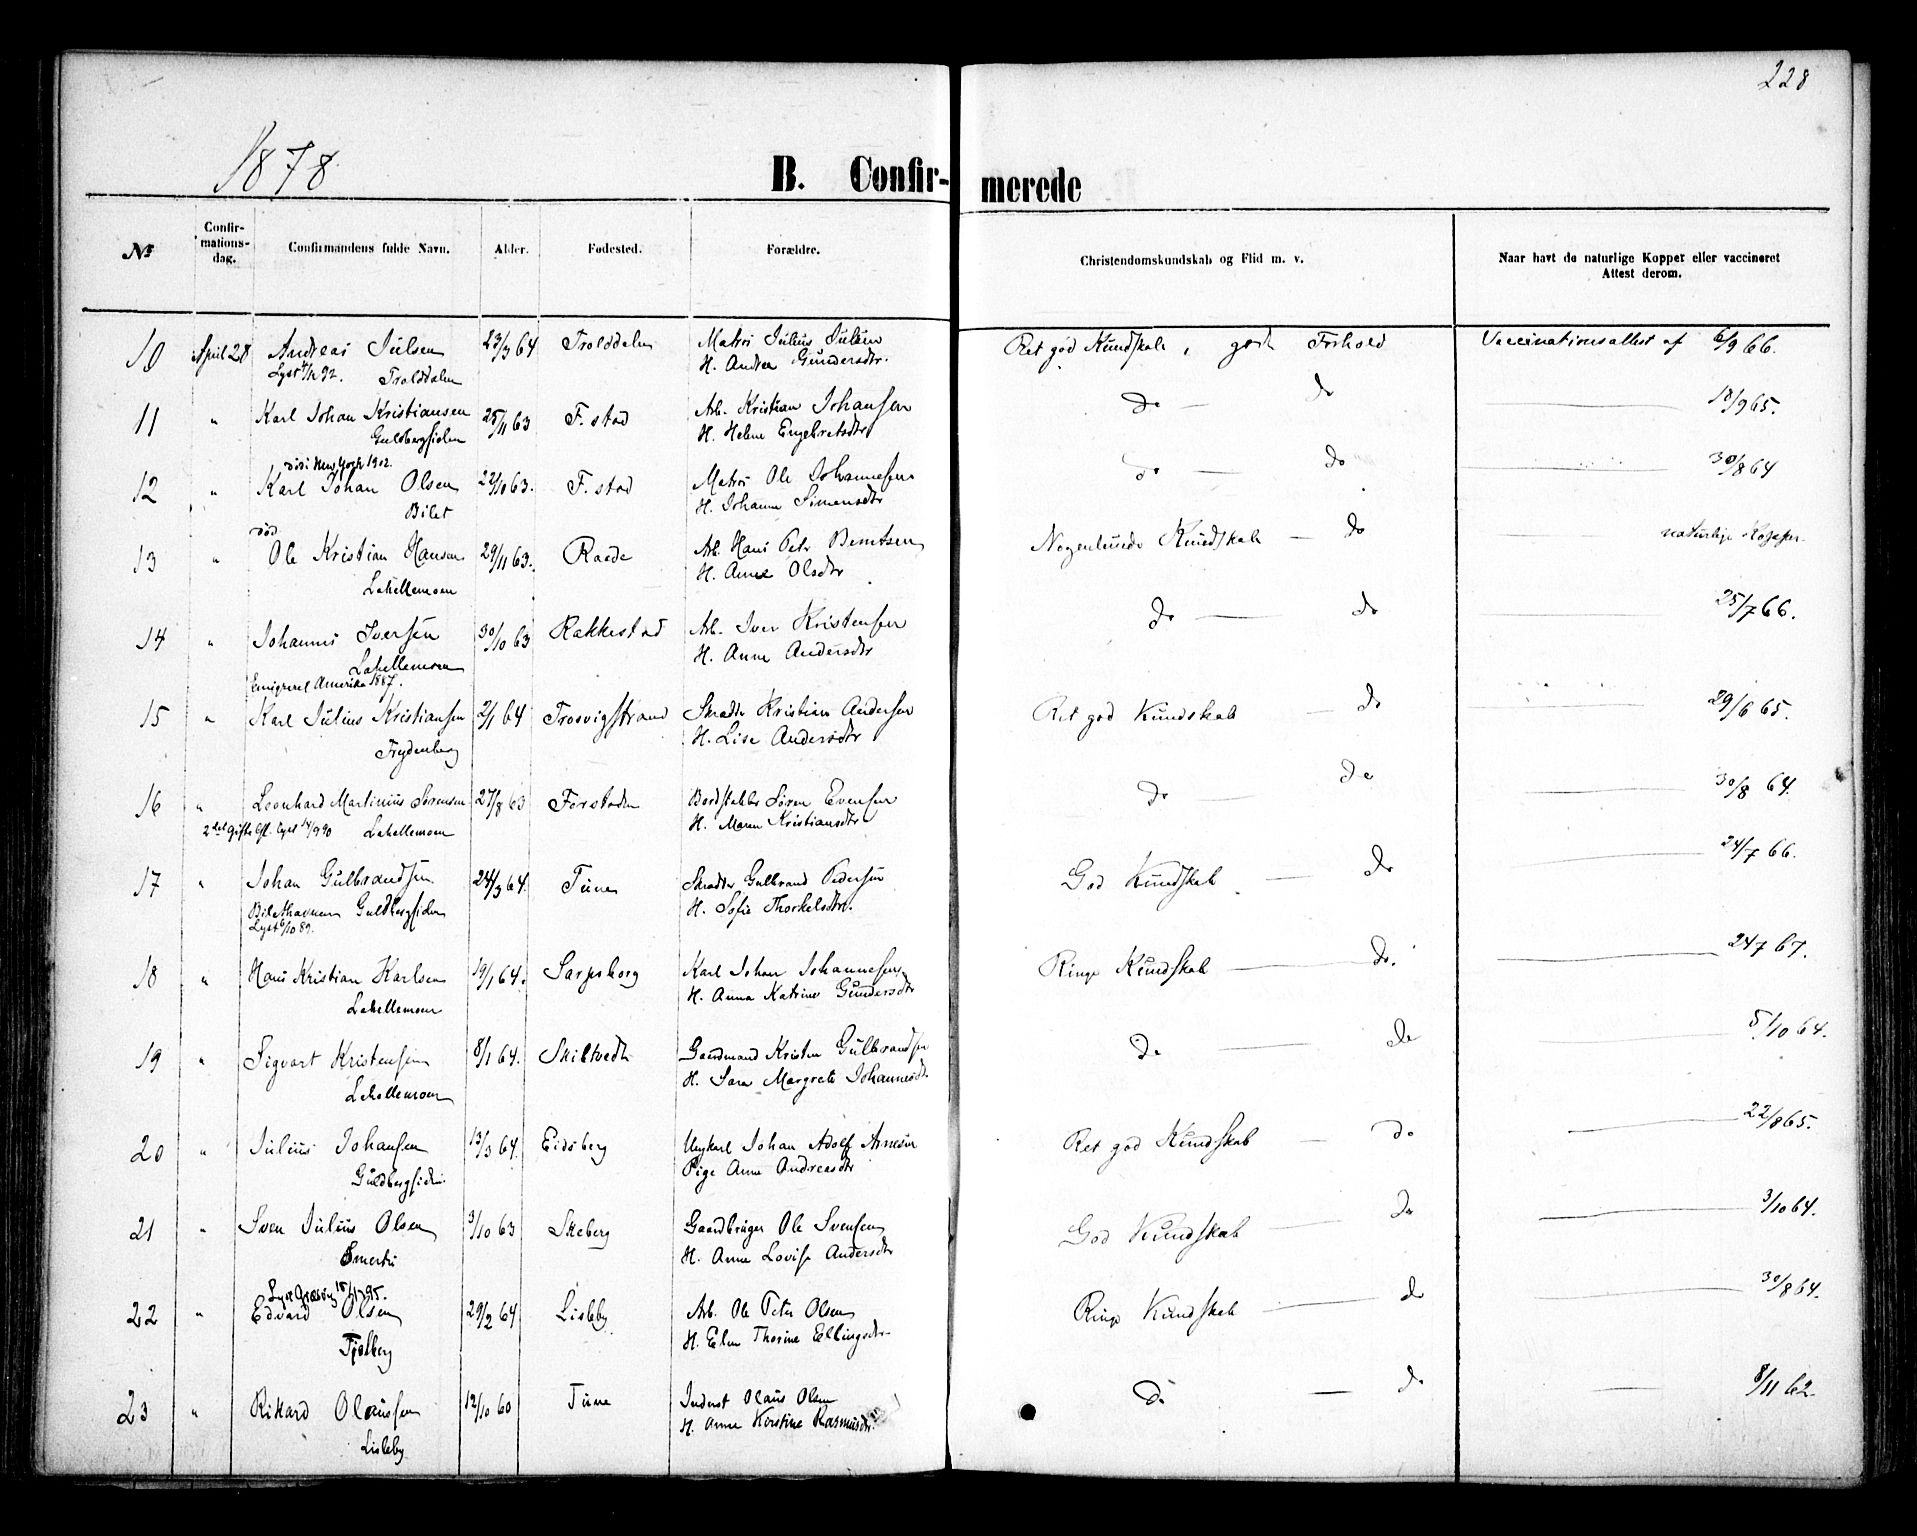 228
1878
B. Confir- merede
№
Confir-
mations-
dag.
Confirmandens fulde Navn.
Alder.
Fødested.
Forældre.
Christendomskundskab og Flid m. v.
Naar havt de naturlige Kopper eller vaccineret
Attest derom.
10 April 28 Andreas Julsen 23/3 64 Trolddalen Matros Julius Julsen Ret god Kundskab, godt Forhold Vaccinationsattest af 6/9 66.
Lyst 92. Trolddalen H. Andrea Gundersdtr.
11 " Karl Johan Kristiansen 25/11 63 F.stad Arb. Kristian Johansen do — do 18/9 65.
Guldbergsiden H. Helene Engebretsdtr
død i New York 1902.
12 " Karl Johan Olsen 22/10 63. F.stad Matros Ole Johannesen do — do 30/8 64
Bilet H. Johanne Simensdtr
død
13 " Ole Kristian Hansen 29/11 63. Raade Arb. Hans Petr Berntsen Nogenlunde Kundskab — do naturlige Kopper
Lahellemoen H. Anne Olsdtr
14 " Johannes Iversen 30/10 63 Rakkestad Arb. Iver Kristensen do — do 25/7 66.
Lahellemoen H. Anne Andersdtr
Emigreret Amerika 1887.
15 " Karl Julius Kristiansen 2/1 64 Trosvigstrand Skrædder Kristian Andersen Ret god Kundskab — do 29/6 65.
Frydenberg H. Lise Andersdtr
16 " Leonhard Martinius Sørensen 27/8 63 Forstaden Bordstabler Søren Evensen do — do 30/8 64.
2det Gifte Lyst 14/9 90 Lahellemoen H. Maren Kristiansdtr
17 " Johan Gulbrandsen 24/3 64. Tune Skrædder Gulbrand Pedersen God Kundskab — do 24/7 66.
Guldbergsiden H. Sofie Thorkelsdtr.
Lyst 6/10 89.
18 " Hans Kristian Karlsen 19/1 64. Sarpsborg Karl Johan Johannesen Ringe Kundskab — do. 24 7 67.
Lahellemoen H. Anna Katrine Gundersdtr
19 " Sigvart Kristensen 8/1 64. Skiltvedt Gaardmand Kristen Gulbrandsen do — do 5/10 64.
Lahellemoen H. Sara Margrete Johannesdt.
20 " Julius Johansen 13/3 64 Eidsberg Ungkarl Johan Adolf Arnesen Ret god Kundskab — do 22/8 65.
Guldbergsiden Pige Anne Andreasdtr
21 " Sven Julius Olsen 3/10 63 Skeberg Gaardbruger Ole Svensen God Kundskab — do 3/10 64.
Smertu H. Anne Lovise Andersdtr
Lyst Græsvig 95.
22 " Edvard Olsen 29/2 64 Lisleby Arb. Ole Peter Olsen Ringe Kundskab — do 30/8 64.
Fjelberg H. Elen Thorine Ellingsdtr
23 " Rikard Olaussen 12/10 60 Tune Inderst Olaus Olsen do — do 8/11 62.
Lisleby H. Anne Kerstine Rasmusdtr.